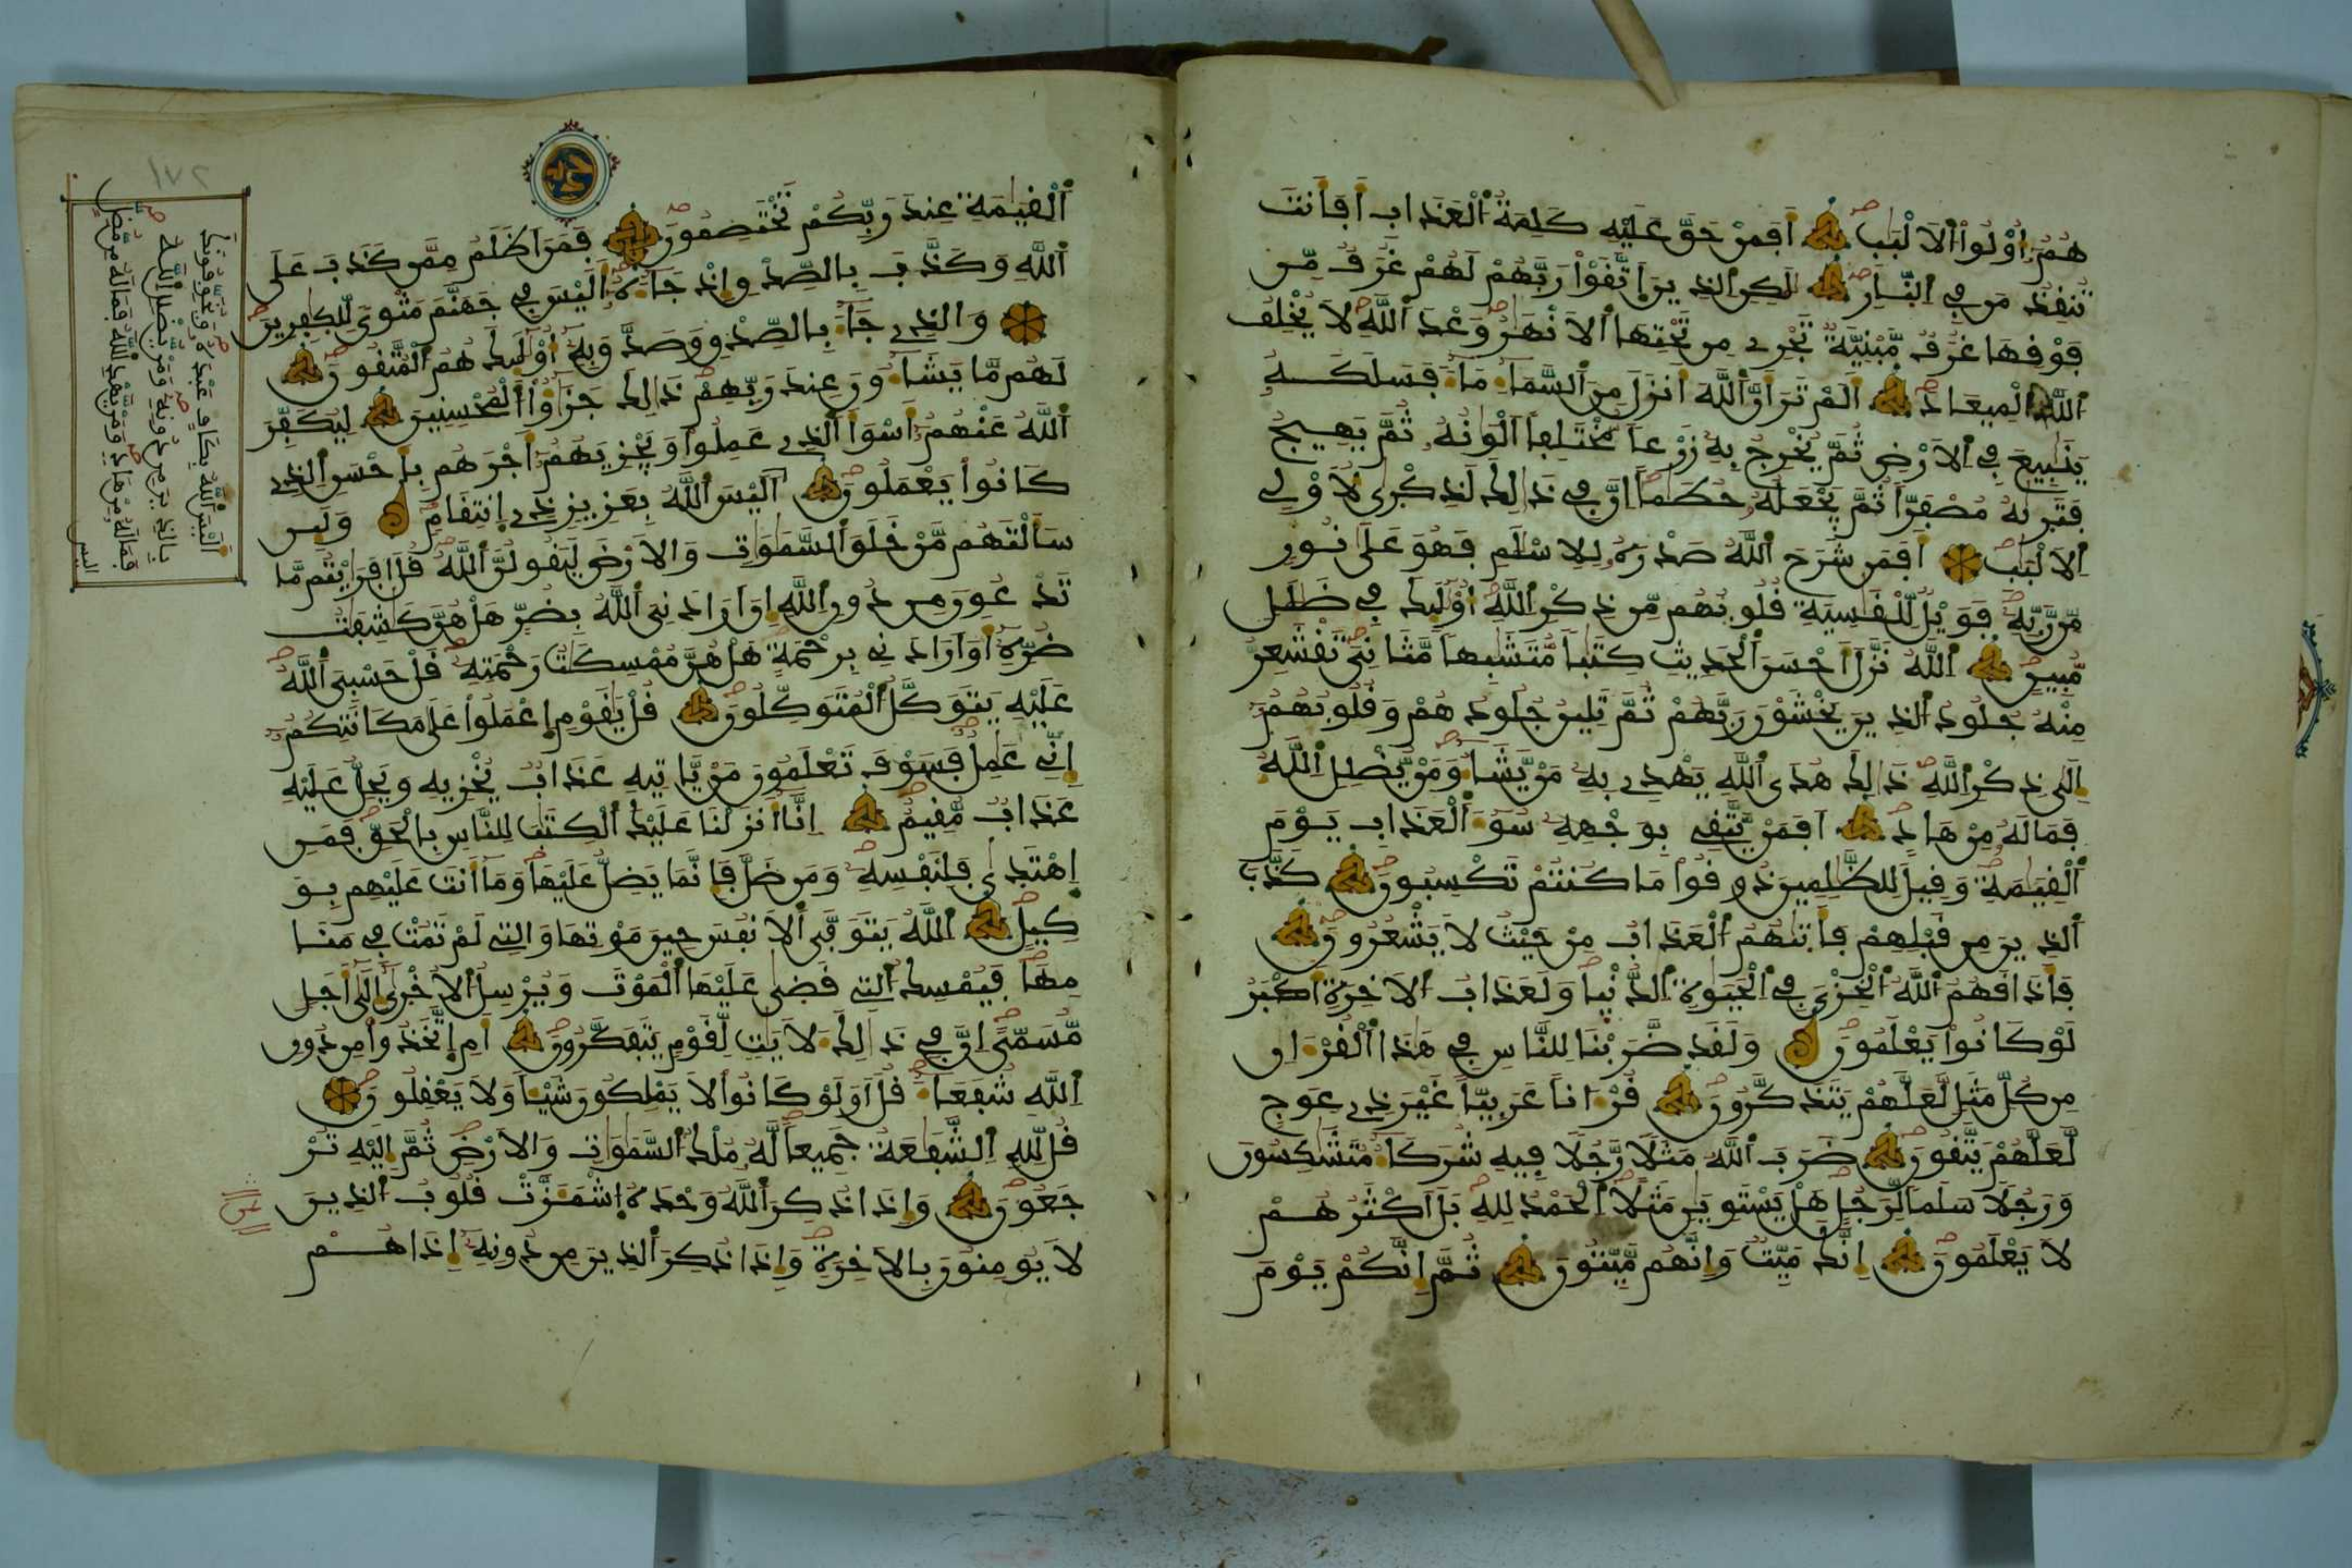 هُمُۥٓ أُوْلُواْ اُلَالْبَٰبِ أَفَمَنْ حَقَّ عَلَيْهِ كَلِمَةُ اُلْعَذَابِ أَفَأَنتَ
تُنقِذُ مَن فِي اِلنّ۪ارِ لَٰكِنِ اِلذِينَ اَتَّقَوْاْ رَبَّهُمْ لَهُمْ غُرَفٌ مِّن
فَوْقِهَا غُرَفٌ مَّبْنِيَّةٌ تَجْرِي مِن تَحْتِهَا اَلَانْهَٰرُ وَعْدَ اَللَّهِ لَا يُخْلِفُ
اُللَّهُ اُلْمِيعَادَ أَلَمْ تَرَ أَنَّ اَللَّهَ أَنزَلَ مِنَ اَلسَّمَآءِ مَآءً فَسَلَكَهُۥ
يَنَٰبِيعَ فِي اِلَارْضِ ثُمَّ يُخْرِجُ بِهِۦ زَرْعاً مُّخْتَلِفاً اَلْوَٰنُهُۥ ثُمَّ يَهِيجُ
فَتَر۪ىٰهُ مُصْفَرّاً ثُمَّ يَجْعَلُهُۥ حُطَٰماً اِنَّ فِي ذَٰلِكَ لَذِكْر۪ىٰ لِأُوْلِي
اِلَالْبَٰبِ أَفَمَن شَرَحَ اَللَّهُ صَدْرَهُۥ لِلِاسْلَٰمِ فَهُوَ عَلَىٰ نُورٍ
مِّن رَّبِّهِۦ فَوَيْلٌ لِّلْقَٰسِيَةِ قُلُوبُهُم مِّن ذِكْرِ اِللَّهِ أُوْلَٰٓئِكَ فِي ضَلَٰلٍ
مُّبِينٍ اِللَّهُ نَزَّلَ أَحْسَنَ اَلْحَدِيثِ كِتَٰباً مُّتَشَٰبِهاً مَّثَانِيَ تَقْشَعِرُّ
مِنْهُ جُلُودُ اُلذِينَ يَخْشَوْنَ رَبَّهُمْ ثُمَّ تَلِينُ جُلُودُهُمْ وَقُلُوبُهُمُۥٓ
إِلَىٰ ذِكْرِ اِللَّهِ ذَٰلِكَ هُدَى اَللَّهِ يَهْدِي بِهِۦ مَنْ يَّشَآءُ وَمَنْ يُّضْلِلِ اِللَّهُ
فَمَا لَهُۥ مِنْ هَادٍ اَفَمَنْ يَّتَّقِي بِوَجْهِهِۦ سُوٓءَ اَلْعَذَابِ يَوْمَ
اَلْقِيَٰمَةِ وَقِيلَ لِلظَّٰلِمِينَ ذُوقُواْ مَا كُنتُمْ تَكْسِبُونَ كَذَّبَ
اَلذِينَ مِن قَبْلِهِمْ فَأَتَىٰهُمُ اُلْعَذَابُ مِنْ حَيْثُ لَا يَشْعُرُونَ
فَأَذَاقَهُمُ اُللَّهُ اُلْخِزْيَ فِي اِلْحَيَوٰةِ اِلدُّنْيَا وَلَعَذَابُ اُلَاخِرَةِ أَكْبَرُ
لَوْ كَانُواْ يَعْلَمُونَ وَلَقَد ضَّرَبْنَا لِلنَّاسِ فِي هَٰذَا اَلْقُرْءَانِ
مِن كُلِّ مَثَلٍ لَّعَلَّهُمْ يَتَذَكَّرُونَ قُرْءَاناً عَرَبِيّاً غَيْرَ ذِي عِوَجٍ
لَّعَلَّهُمْ يَتَّقُونَ ضَرَبَ اَللَّهُ مَثَلًا رَّجُلًا فِيهِ شُرَكَآءُ مُتَشَٰكِسُونَ
وَرَجُلًا سَلَماً لِّرَجُلٍ هَلْ يَسْتَوِيَٰنِ مَثَلًا اِلْحَمْدُ لِلهِ بَلَ اَكْثَرُهُمْ
لَا يَعْلَمُونَ إِنَّكَ مَيِّتٌ وَإِنَّهُم مَّيِّتُونَ ثُمَّ إِنَّكُمْ يَوْمَ
اَلْقِيَٰمَةِ عِندَ رَبِّكُمْ تَخْتَصِمُونَ فَمَنَ اَظْلَمُ مِمَّن كَذَبَ عَلَى
اَللَّهِ وَكَذَّبَ بِالصِّدْقِ إِذْ جَآءَهُۥٓ أَلَيْسَ فِي جَهَنَّمَ مَثْوىً لِّلْكٰ۪فِرِينَ
وَالذِي جَآءَ بِالصِّدْقِ وَصَدَّقَ بِهِۦٓ أُوْلَٰٓئِكَ هُمُ اُلْمُتَّقُونَ
لَهُم مَّا يَشَآءُونَ عِندَ رَبِّهِمْ ذَٰلِكَ جَزَٰٓؤُاْ اُلْمُحْسِنِينَ لِيُكَفِّرَ
اَللَّهُ عَنْهُمُۥٓ أَسْوَأَ اَلذِي عَمِلُواْ وَيَجْزِيَهُمُۥٓ أَجْرَهُم بِأَحْسَنِ اِلذِي
كَانُواْ يَعْمَلُونَ أَلَيْسَ اَللَّهُ بِعَزِيزٍ ذِي اِنتِقَامٍ وَلَئِن
سَأَلْتَهُم مَّنْ خَلَقَ اَلسَّمَٰوَٰتِ وَالَارْضَ لَيَقُولُنَّ اَللَّهُ قُلَ اَفَرَٰٓيْتُم مَّا
تَدْعُونَ مِن دُونِ اِللَّهِ إِنَ اَرَادَنِيَ اَللَّهُ بِضُرٍّ هَلْ هُنَّ كَٰشِفَٰتُ
ضُرِّهِۦٓ أَوَ اَرَادَنِي بِرَحْمَةٍ هَلْ هُنَّ مُمْسِكَٰتُ رَحْمَتِهِۦ قُلْ حَسْبِيَ اَللَّهُ
عَلَيْهِ يَتَوَكَّلُ اُلْمُتَوَكِّلُونَ قُلْ يَٰقَوْمِ اِعْمَلُواْ عَلَىٰ مَكَانَتِكُمُۥٓ
إِنِّي عَٰمِلٌ فَسَوْفَ تَعْلَمُونَ مَنْ يَّاتِيهِ عَذَابٌ يُخْزِيهِ وَيَحِلُّ عَلَيْهِ
عَذَابٌ مُّقِيمٌ اِنَّآ أَنزَلْنَا عَلَيْكَ اَلْكِتَٰبَ لِلنَّاسِ بِالْحَقِّ فَمَنِ
اِهْتَدَىٰ فَلِنَفْسِهِۦ وَمَن ضَلَّ فَإِنَّمَا يَضِلُّ عَلَيْهَا وَمَآ أَنتَ عَلَيْهِم بِوَ
كِيلٍ اِللَّهُ يَتَوَفَّى اَلَانفُسَ حِينَ مَوْتِهَا وَالتِي لَمْ تَمُتْ فِي مَنَا
مِهَا فَيُمْسِكُ اُلتِي قَضَىٰ عَلَيْهَا اَلْمَوْتَ وَيُرْسِلُ اُلُاخْر۪ىٰٓ إِلَىٰٓ أَجَلٍ
مُّسَمًّى اِنَّ فِي ذَٰلِكَ لَأٓيَٰتٍ لِّقَوْمٍ يَتَفَكَّرُونَ أَمِ اِتَّخَذُواْ مِن دُونِ
اِللَّهِ شُفَعَآءَ قُلَ اَوَلَوْ كَانُواْ لَا يَمْلِكُونَ شَيْـاً وَلَا يَعْقِلُونَ
قُل لِّلهِ اِلشَّفَٰعَةُ جَمِيعاً لَّهُۥ مُلْكُ اُلسَّمَٰوَٰتِ وَالَارْضِ ثُمَّ إِلَيْهِ تُرْ
جَعُونَ وَإِذَا ذُكِرَ اَللَّهُ وَحْدَهُ اُشْمَأَزَّتْ قُلُوبُ اُلذِينَ
لَا يُومِنُونَ بِالَاخِرَةِ وَإِذَا ذُكِرَ اَلذِينَ مِن دُونِهِۦٓ إِذَا هُمْ
أَلَيْسَ اَللَّهُ بِكَافٍ عَبْدَهُۥ وَيُخَوِّفُونَكَ
بِالذِينَ مِن دُونِهِۦ وَمَنْ يُّضْلِلِ اِللَّهُ
فَمَا لَهُۥ مِنْ هَادٍ وَمَنْ يَّهْدِ اِللَّهُ فَمَا لَهُۥ مِن مُّضِلٍّ
اليس